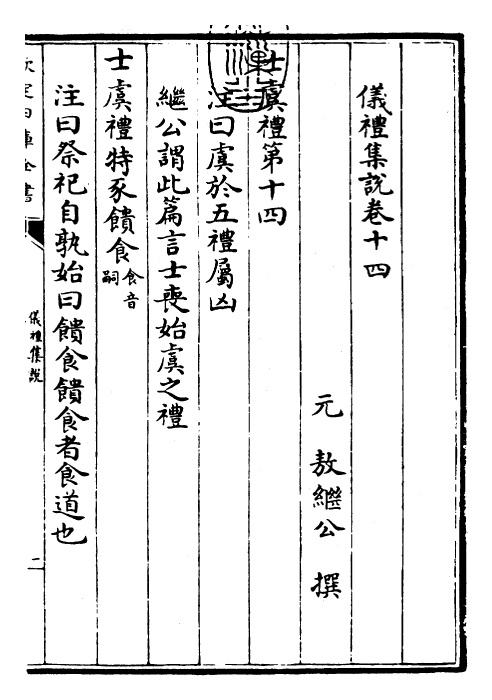 儀禮集説卷十四
元 敖繼公 撰
士虞禮第十四
注曰虞於五禮屬凶
繼公謂此篇言士喪始虞之禮
士虞禮特豕饋食食音嗣
注曰祭祀自孰始曰饋食饋食者食道也
儀禮集説
二